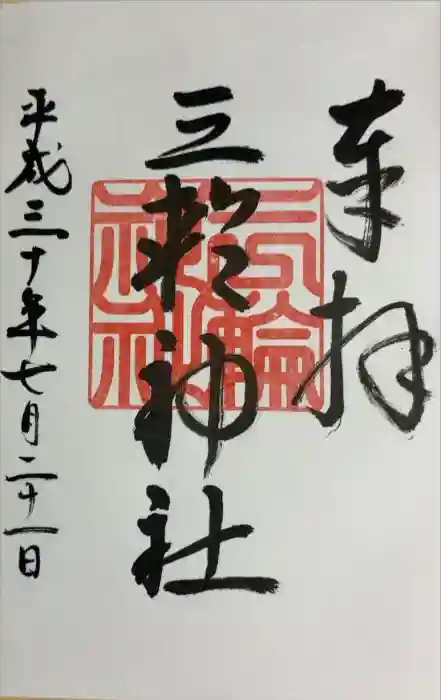 奉拝
三輪神社
三輪神社
平成三十年七月二十一日